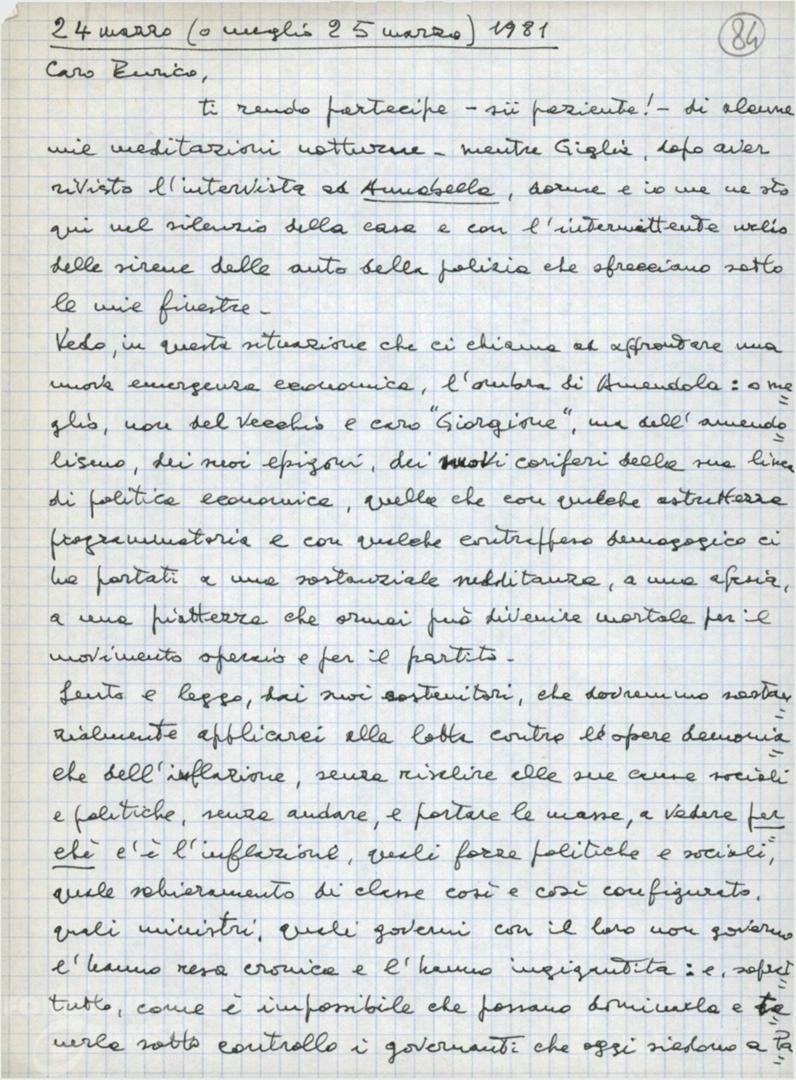 24 marzo (o meglio 25 marzo) 1981
84
Caro Enrico,
ti rendo partecipe - sii paziente! - di alcune
mie meditazioni notturne - mentre Giglia, dopo aver
rivisto l'intervista ad Annabella, dorme e io me ne sto
qui nel silenzio della casa e con l'intermittente urlio
delle sirene delle auto della polizia che sfrecciano sotto
le mie finestre -
Vedo, in questa situazione che ci chiama ad affrontare una
nuova emergenza economica, l'ombra di Amendola: o me=
glio, non del vecchio e caro "Giorgione", ma dell'amendo=
lismo, dei suoi epigoni, dei nuovi corifei della sua linea
di politica economica, quella che con qualche astrattezza
programmatoria e con qualche contrappeso demagogico ci
ha portati a una sostanziale sudditanza, a una afasia,
a una piattezza che ormai può divenire mortale per il
movimento operaio e per il partito -
Sento e leggo, dai suoi sostenitori, che dovremmo sostan=
zialmente applicarci alla lotta contro le opere demonia=
che dell'inflazione, senza risalire alle sue cause sociali
e politiche, senza andare, e portare le masse, a vedere per=
chè c'è l'inflazione, quali forze politiche e sociali,
quale schieramento di classe così e così configurato,
quali ministri, quali governi con il loro non governo
l'hanno resa cronica e l'hanno ingigantita: e, soprat=
tutto, come è impossibile che possano dominarla e te=
nerla sotto controllo i governanti che oggi siedono a Pa=